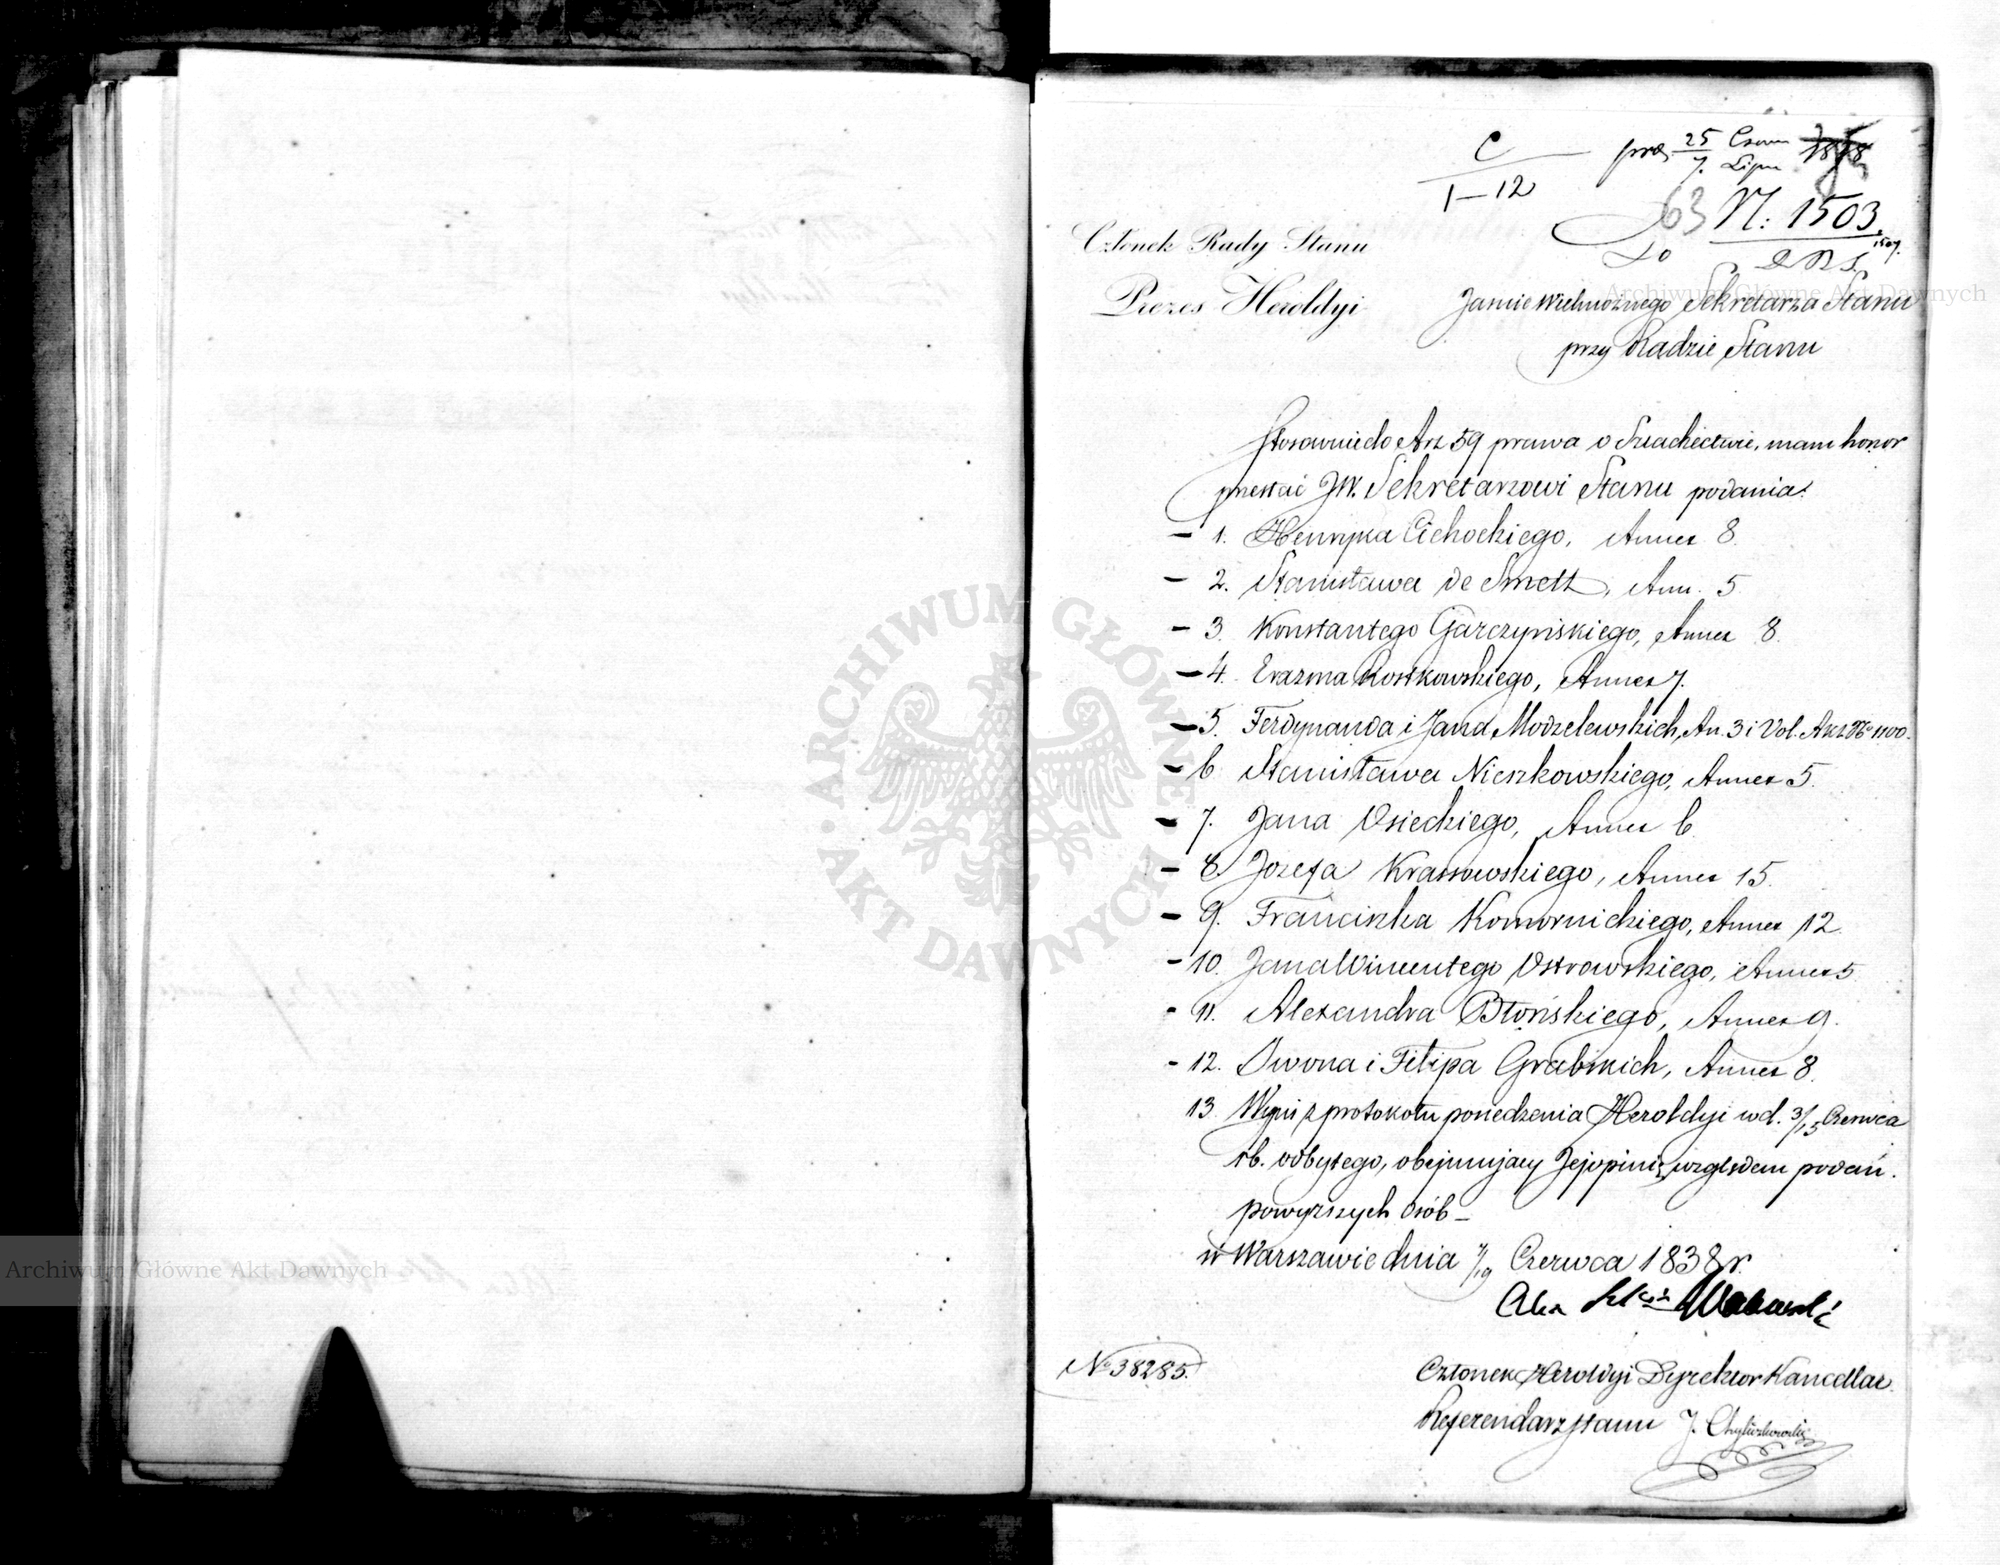 C
1–12
prez 25/7 Czerw Lipca 1838
63 N: 1503.
1507.
Członek Rady Stanu
Do
Prezes Heroldyi
JaśnieWielmożnego Sekretarza Stanu
przy Radzie Stanu
Stosownie do Art 59 prawa o Szlachectwie, mam honor
przesłać JW. Sekretarzowi Stanu podania:
– 1. Henryka Cichockiego, Annex 8.
– 2. Stanisława de Smett, Ann. 5
– 3. Konstantego Garczyńskiego, Annex 8.
– 4. Erazma Rostkowskiego, Annex 7.
– 5. Ferdynanda i Jana Modzelewskich, An. 3 i Vol. Akt No 1100.
– 6 Stanisława Nieszkowskiego, Annex 5.
– 7. Jana Osieckiego, Annex 6
– 8. Jozefa Krassowskiego, Annex 15.
– 9. Franciszka Komornickiego, Annex 12.
– 10. Jana Wincentego Ostrowskiego, Annex 5
– 11. Alexandra Błońskiego, Annex 9.
– 12. Iwona i Filipa Grabskich, Annex 8.
13. Wypis z protokołu posiedzenia Heroldyi w d. 3/15 Czerwca
rb. odbytego, obejmujący Jej opinię względem podań
powyższych osób –
w Warszawie dnia 7/19 Czerwca 1838 r.
No 38285.
Członek Heroldyi Dyrektor Kancellar.
Referendarz Stanu J. Chyliczkowski
ARCHIWUM GŁÓWNE AKT DAWNYCH
Archiwum Główne Akt Dawnych
Archiwum Główne Akt Dawnych